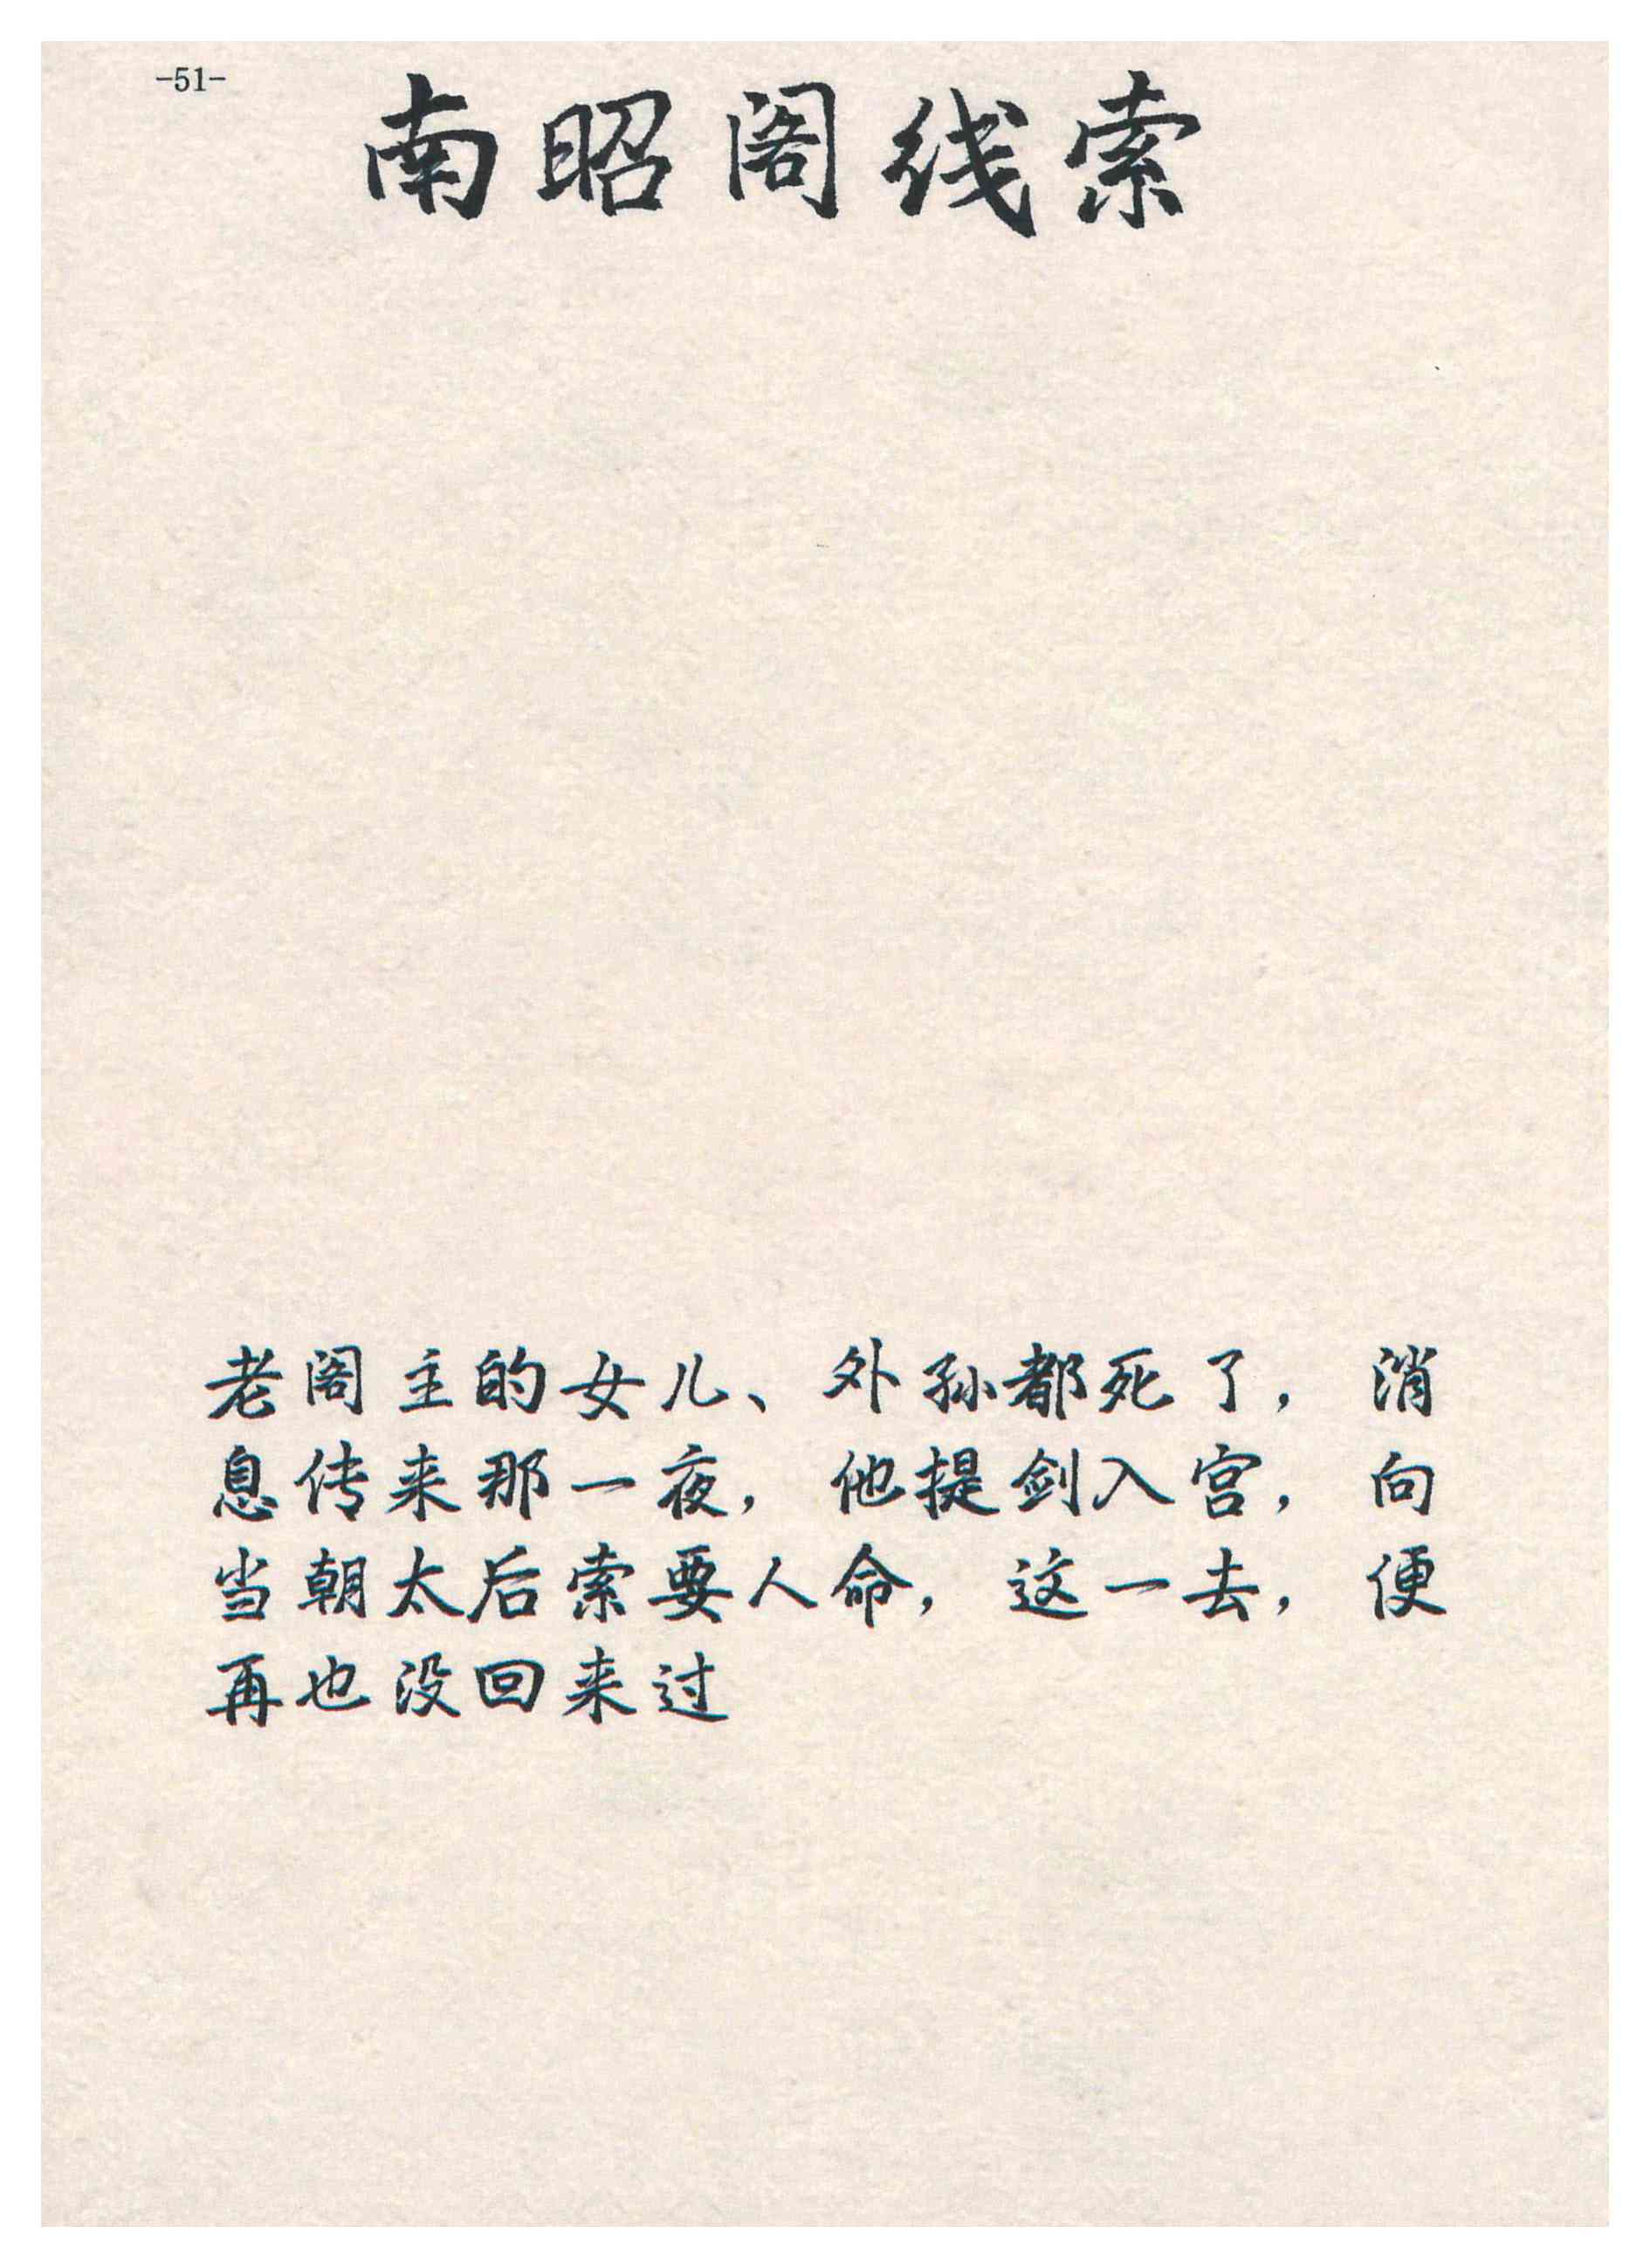 -51-
南昭阁线索
老阁主的女儿、外孙都死了，消
息传来那一夜，他提剑入宫，向
当朝太后索要人命，这一去，便
再也没回来过